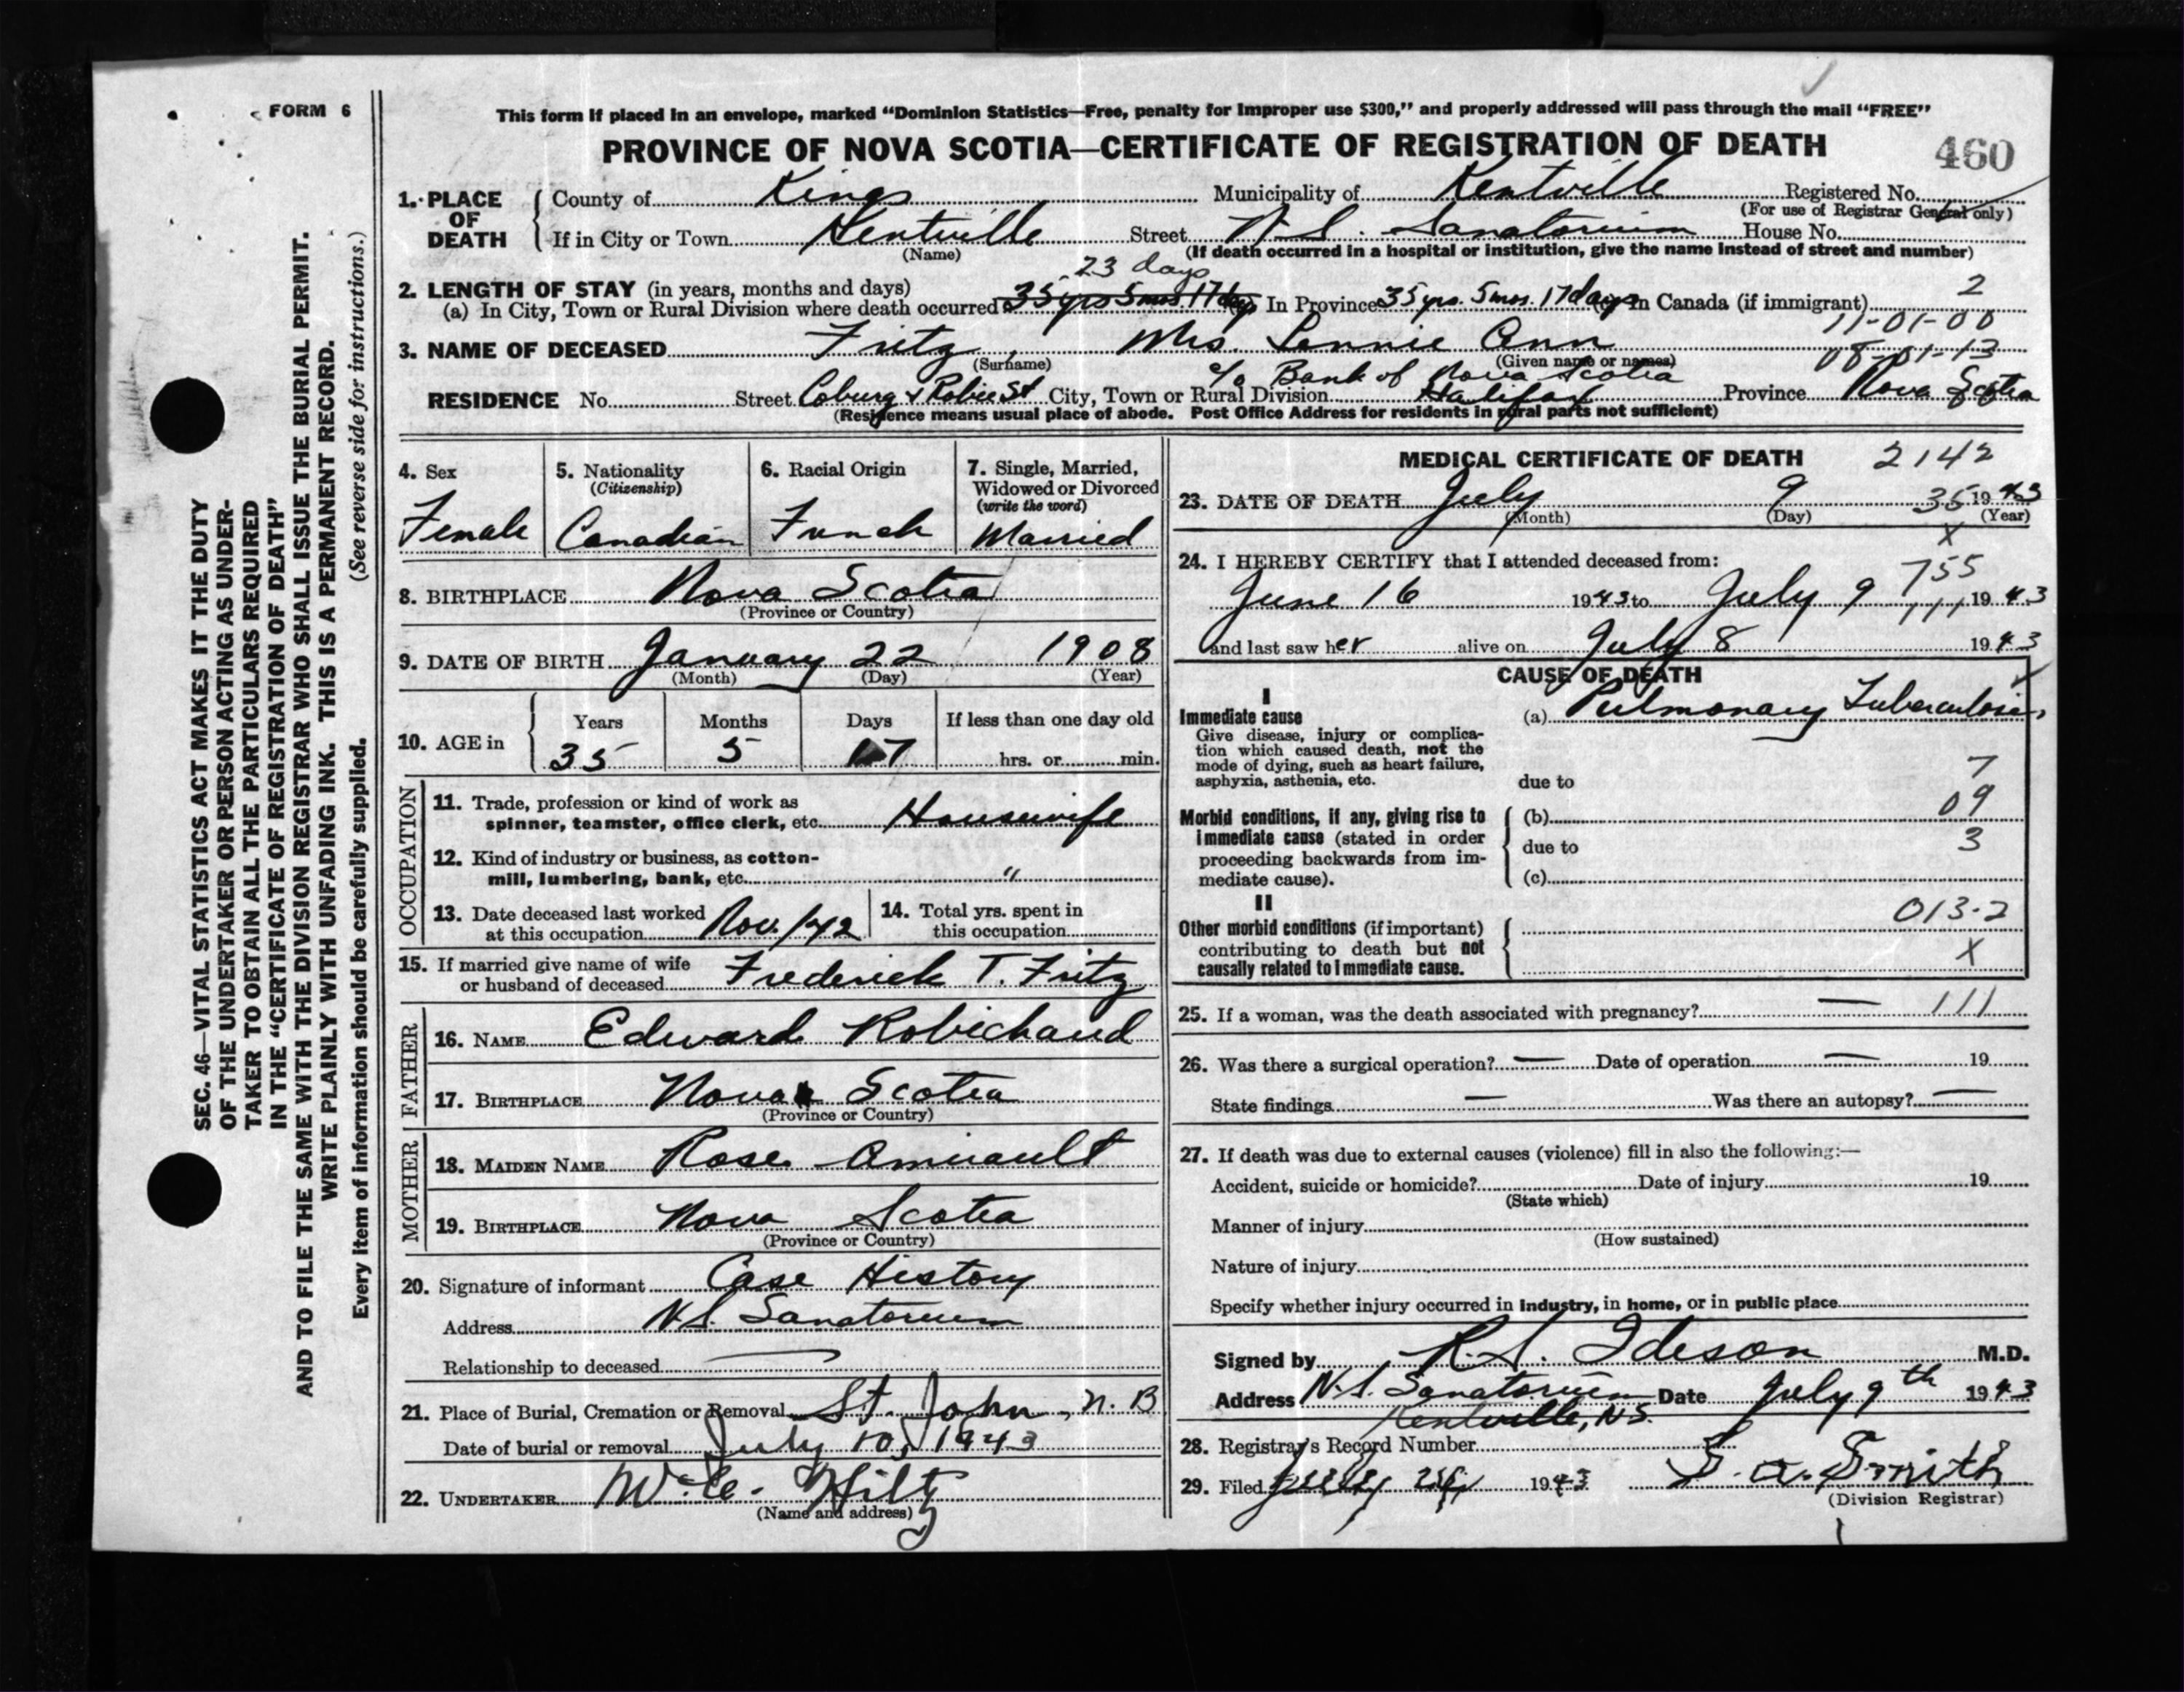 FORM 6
This form if placed in an envelope, marked "Dominion Statistics—Free, penalty for improper use $300," and properly addressed will pass through the mail "FREE"
PROVINCE OF NOVA SCOTIA—CERTIFICATE OF REGISTRATION OF DEATH
460
1. PLACE OF DEATH County of Kings Municipality of Kentville Registered No.
(For use of Registrar General only)
If in City or Town Kentville Street N.S. Sanatorium House No.
(Name) (If death occurred in a hospital or institution, give the name instead of street and number)
23 days
2. LENGTH OF STAY (in years, months and days)
(a) In City, Town or Rural Division where death occurred 35 yrs 5 mos. 17 days In Province 35 yrs. 5 mos. 17 days In Canada (if immigrant)
2
11-01-00
3. NAME OF DECEASED Fritz, Mrs. Lennie Ann
(Surname) (Given name or names)
08-01-13
c/o Bank of Nova Scotia
RESIDENCE No. Street Coburg & Robie St City, Town or Rural Division Halifax Province Nova Scotia
(Residence means usual place of abode. Post Office Address for residents in rural parts not sufficient)
4. Sex
Female
5. Nationality
(Citizenship)
Canadian
6. Racial Origin
French
7. Single, Married,
Widowed or Divorced
(write the word)
Married
8. BIRTHPLACE Nova Scotia
(Province or Country)
9. DATE OF BIRTH January 22 1908
(Month) (Day) (Year)
10. AGE in
Years Months Days If less than one day old
35 5 17 hrs. or min.
OCCUPATION
11. Trade, profession or kind of work as
spinner, teamster, office clerk, etc. Housewife
12. Kind of industry or business, as cotton-
mill, lumbering, bank, etc. "
13. Date deceased last worked
at this occupation Nov. /42
14. Total yrs. spent in
this occupation
15. If married give name of wife
or husband of deceased Frederick T. Fritz
FATHER
16. NAME Edward Robichaud
17. BIRTHPLACE Nova Scotia
(Province or Country)
MOTHER
18. MAIDEN NAME Rose Amirault
19. BIRTHPLACE Nova Scotia
(Province or Country)
20. Signature of informant Case History
Address N.S. Sanatorium
Relationship to deceased
21. Place of Burial, Cremation or Removal St. John, N.B
Date of burial or removal July 10, 1943
22. UNDERTAKER W. C. Hiltz
(Name and address)
MEDICAL CERTIFICATE OF DEATH
2142
23. DATE OF DEATH July 9 1943
(Month) (Day) (Year)
35
X
24. I HEREBY CERTIFY that I attended deceased from:
755
June 16 1943 to July 9 1943
111
and last saw her alive on July 8 1943
CAUSE OF DEATH
I
Immediate cause
Give disease, injury or complica-
tion which caused death, not the
mode of dying, such as heart failure,
asphyxia, asthenia, etc.
(a) Pulmonary Tuberculosis
due to
7
09
Morbid conditions, if any, giving rise to
immediate cause (stated in order
proceeding backwards from im-
mediate cause).
(b)
due to
3
(c)
II
Other morbid conditions (if important)
contributing to death but not
causally related to immediate cause.
013.2
X
25. If a woman, was the death associated with pregnancy? — 111
26. Was there a surgical operation? — Date of operation — 19
State findings — Was there an autopsy? —
27. If death was due to external causes (violence) fill in also the following:—
Accident, suicide or homicide? Date of injury 19
(State which)
Manner of injury
(How sustained)
Nature of injury
Specify whether injury occurred in industry, in home, or in public place
Signed by R. S. Ideson M.D.
Address N.S. Sanatorium Date July 9th 1943
Kentville, N.S.
28. Registrar's Record Number
29. Filed July 1943 S. A. Smith
(Division Registrar)
SEC. 46—VITAL STATISTICS ACT MAKES IT THE DUTY
OF THE UNDERTAKER OR PERSON ACTING AS UNDER-
TAKER TO OBTAIN ALL THE PARTICULARS REQUIRED
IN THE "CERTIFICATE OF REGISTRATION OF DEATH"
AND TO FILE THE SAME WITH THE DIVISION REGISTRAR WHO SHALL ISSUE THE BURIAL PERMIT.
WRITE PLAINLY WITH UNFADING INK. THIS IS A PERMANENT RECORD.
Every item of information should be carefully supplied. (See reverse side for instructions.)